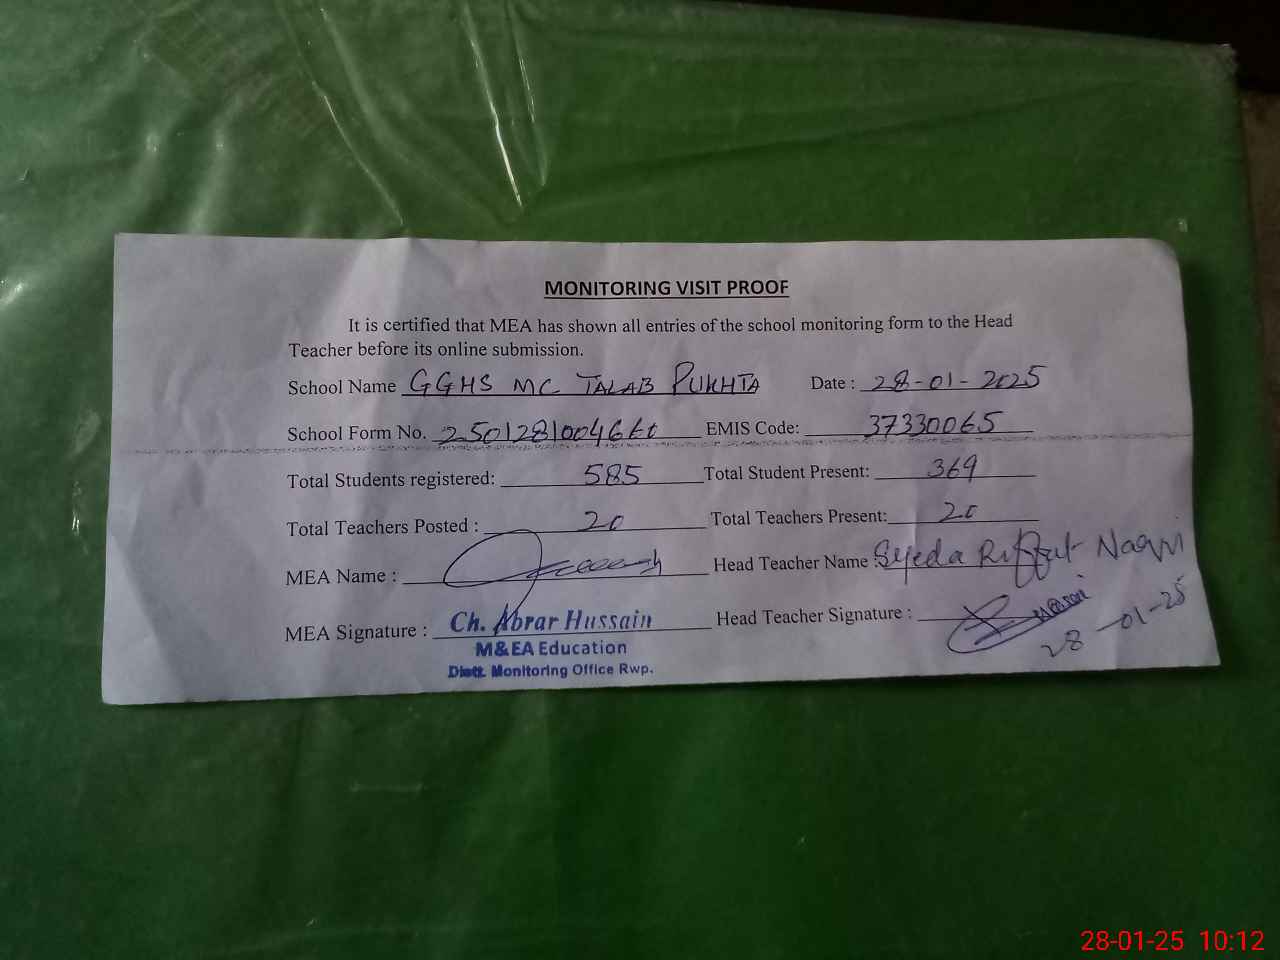 MONITORING VISIT PROOF
It is certified that MEA has shown all entries of the school monitoring form to the Head
Teacher before its online submission.
School Name GGHS MC TALAB PUKHTA Date : 28-01-2025
School Form No. EMIS Code: 37330065
Total Students registered: 585 Total Student Present: 369
Total Teachers Posted : 20 Total Teachers Present: 20
MEA Name : Head Teacher Name : Syeda Riffat Naqvi
MEA Signature : Ch. Abrar Hussain Head Teacher Signature :
28-01-25
M&EA Education
Distt. Monitoring Office Rwp.
28-01-25 10:12